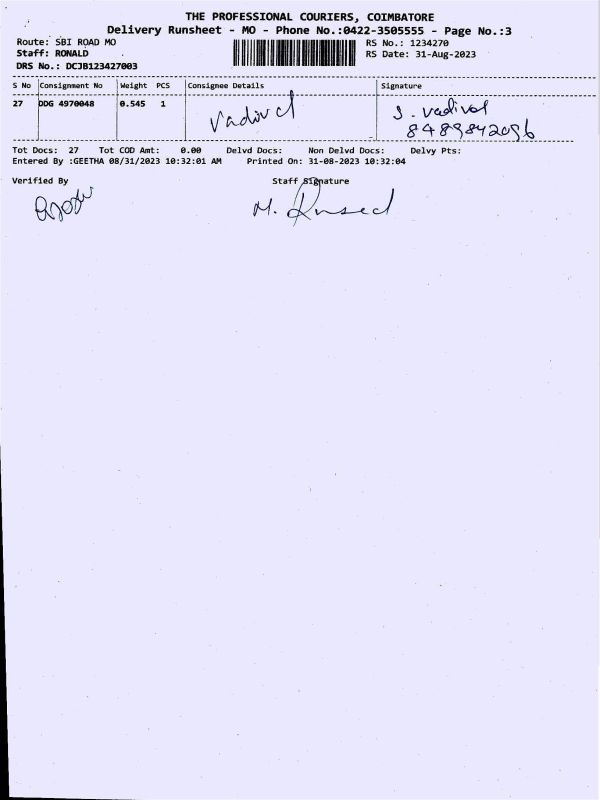 THE PROFESSIONAL COURIERS, COIMBATORE
Delivery Runsheet - MO - Phone No.:0422-3505555 - Page No.:3
Route: SBI ROAD MO
RS No.: 1234270
Staff: RONALD
RS Date: 31-Aug-2023
DRS No.: DCJB123427003
S No Consignment No Weight PCS Consignee Details Signature
27 DDG 4970048 0.545 1 Vadivel S. Vadivel
8489842096
Tot Docs: 27 Tot COD Amt: 0.00 Delvd Docs: Non Delvd Docs: Delvy Pts:
Entered By :GEETHA 08/31/2023 10:32:01 AM Printed On: 31-08-2023 10:32:04
Verified By Staff Signature
M.